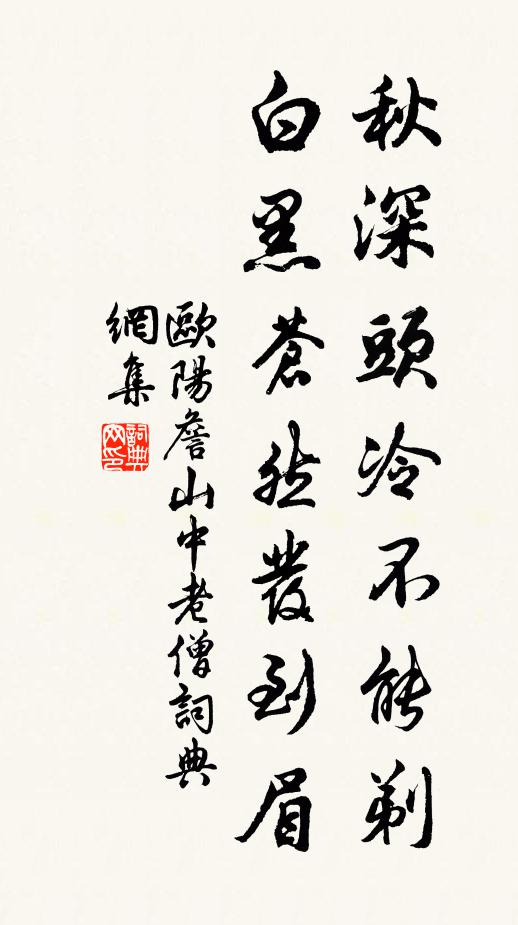 秋深頭冷不能剃
白黑蒼然發到眉
歐陽詹山中老僧詞典
網集
詞典
网印